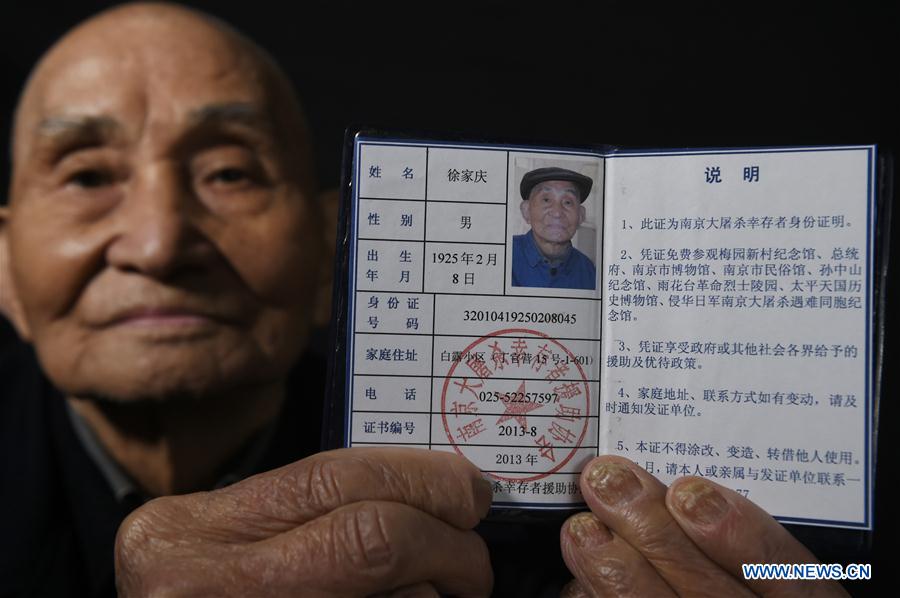 姓 名 徐家庆
性 别 男
出 生
年 月
1925年2月
8日
身 份 证
号 码
32010419250208045
家庭住址 白露小区(丁官营15号-1-601)
电 话 025-52257597
证书编号 2013-8
2013年
杀幸存者援助协
南京大屠杀幸存者援助协会
说 明
1、此证为南京大屠杀幸存者身份证明。
2、凭证免费参观梅园新村纪念馆、总统
府、南京市博物馆、南京市民俗馆、孙中山
纪念馆、雨花台革命烈士陵园、太平天国历
史博物馆、侵华日军南京大屠杀遇难同胞纪
念馆。
3、凭证享受政府或其他社会各界给予的
援助及优待政策。
4、家庭地址、联系方式如有变动，请及
时通知发证单位。
5、本证不得涂改、变造、转借他人使用。
月，请本人或亲属与发证单位联系一
77
WWW.NEWS.CN